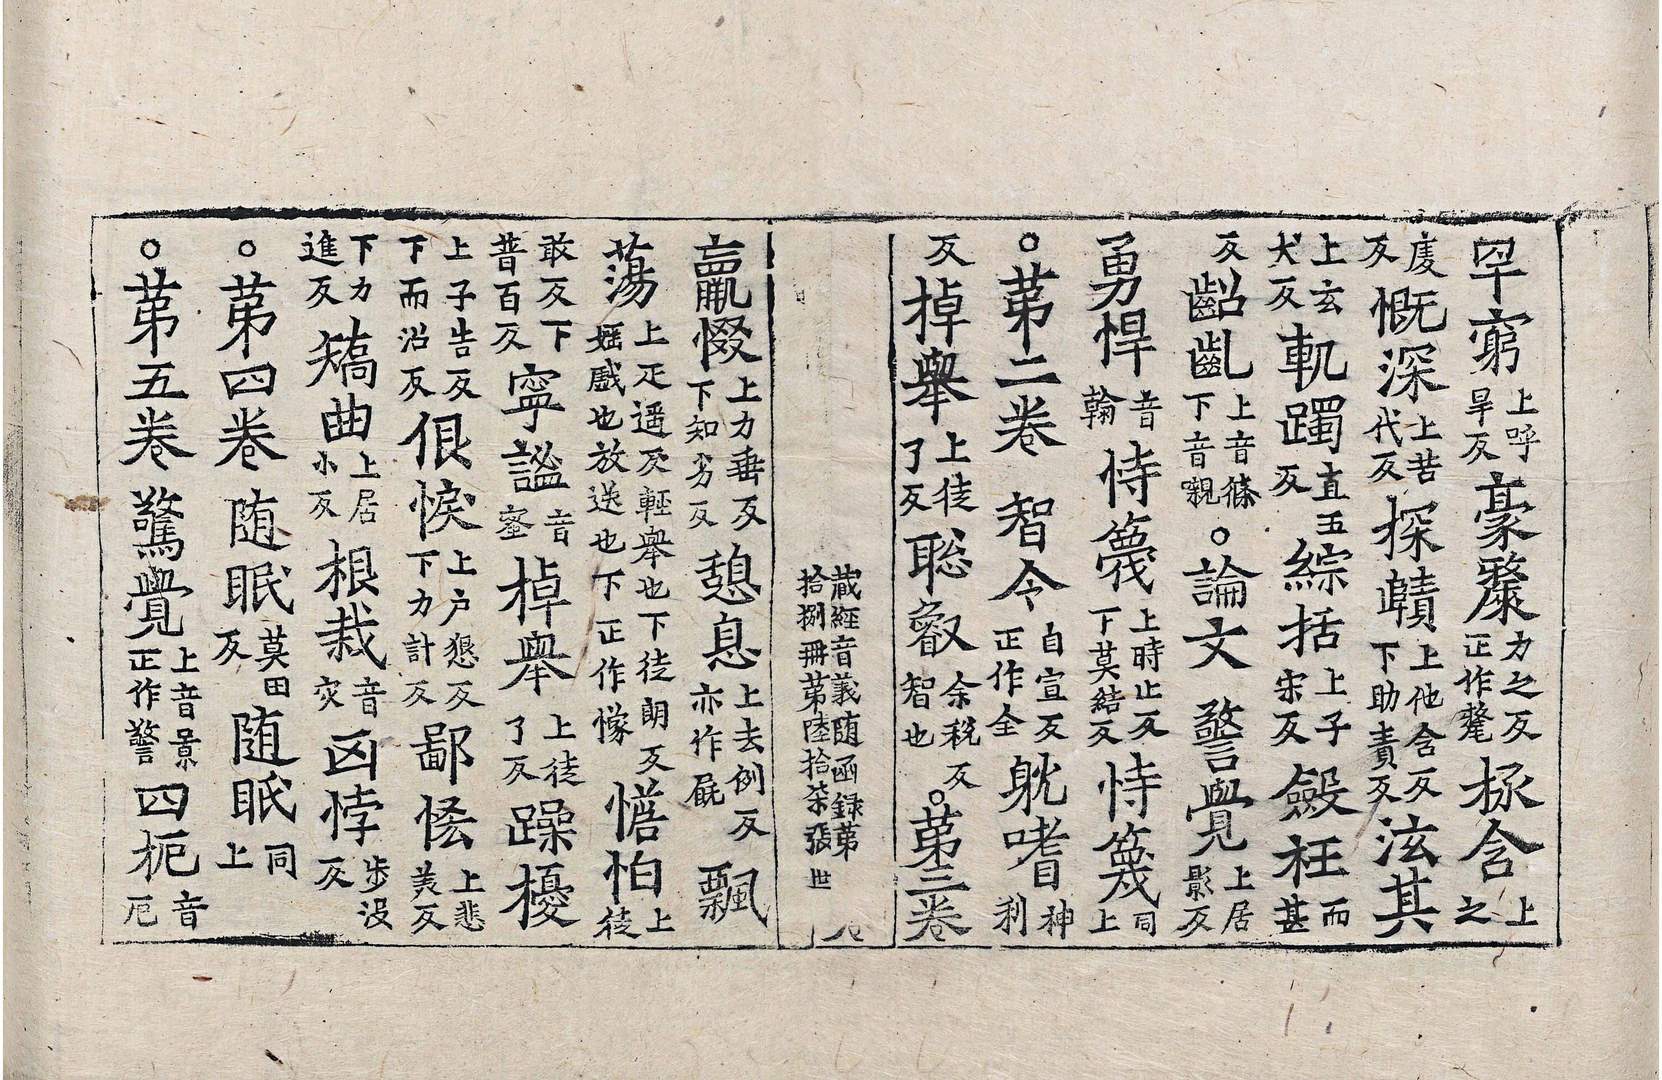 罕窮上呼旱反豪氂力之反正作氂拯含上之
庱反慨深上苦代反探賾上他含反下助責反泫其
上玄犬反軌躅直玉反綜括上子宋反殮枉而甚
反齠齓上音條下音嚫○論文警覺上居影反
勇悍音翰恃篾上時止反下莫結反恃篾同上
○第二卷智令自宣反正作全躭嗜神利
反掉舉上徒了反聡叡余税反智也○第三卷
蔵經音義随函録第拾捌冊第陸拾柒張世
羸惙上力垂反下知劣反憩息上去例反亦作屁飄
蕩上疋遥反輕舉也下徒朗反婬戲也放逸也下正作懞憺怕上徒
敢反下普百反寧謐音蜜掉舉上徒了反躁擾
上子告反下而沼反佷悷上户懇反下力計反鄙恡上悲美反
下力進反矯曲上居小反根栽音灾凶悖步没反
○第四卷随眠莫田反随眠同上
○第五卷驚覺上音景正作警四扼音厄